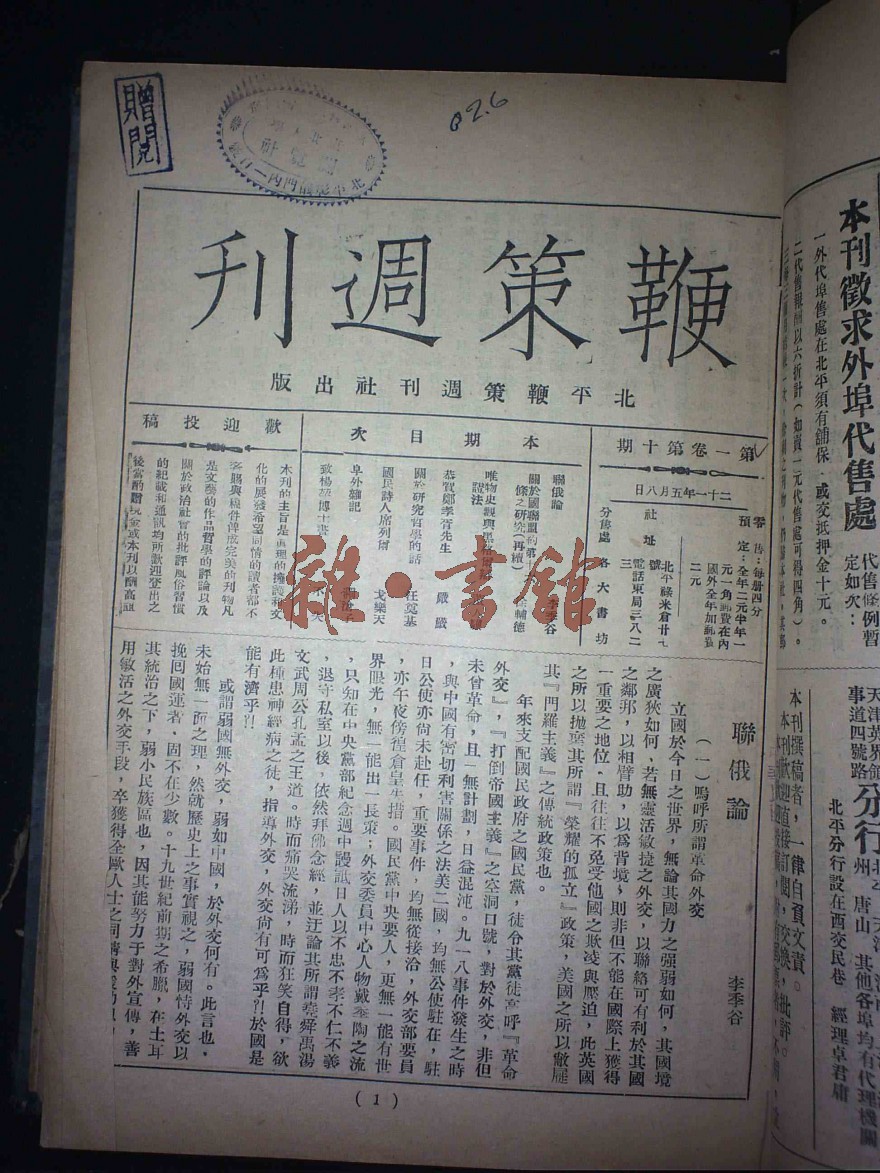 贈閱
026
鞭策週刊
北平鞭策週刊社出版
第一卷第十期
二十一年五月八日
零售：每册四分
預定：全年二元半年一
元一角郵費在內
國外全年加郵費
二元
社址
北平祿米倉廿九
號
電話東局三八二
三
分售處 各大書坊
本期目次
聯俄論 李季谷
關於國聯盟約第十
條之研究(再續)
恭賀鄭孝胥先生 嚴嚴
關於研究哲學的話 汪奠基
國民詩人席列爾 戈樂天
阜外雜記
致楊 博士書
歡迎投稿
本刊的主旨是真理的擁護和文
化的展發希望同情的讀者都不
客賜與稿件俾成完美的刊物凡
是文藝的作品哲學的評論以及
關於政治社會的批評風俗習慣
的紀載和通訊均所歡迎登出之
後當酌贈現金或本刊以酬高誼
雜·書館
聯俄論
李季谷
(一)嗚呼所謂革命外交
立國於今日之世界，無論其國力之強弱如何，其國境
之廣狹如何，若無靈活敏捷之外交，以聯絡可有利於其國
之鄰邦，以相臂助，以為背境，則非但不能在國際上獲得
一重要之地位，且往往不免受他國之欺凌與壓迫，此英國
之所以拋棄其所謂『榮耀的孤立』政策，美國之所以敝屣
其『門羅主義』之傳統政策也。
年來支配國民政府之國民黨，徒令其黨徒高呼『革命
外交』，『打倒帝國主義』之空洞口號，對於外交，非但
未曾革命，且一無計劃，日益混沌。九一八事件發生之時
，與中國有密切利害關係之法美二國，均無公使駐在，駐
日公使亦尚未赴任，重要事件，均無從接洽，外交部要員
，亦午夜傍徨倉皇失措。國民黨中央要人，更無一能有世
界眼光，無一能出一長策；外交委員中心人物戴季陶之流
，只知在中央黨部紀念週中謾詆日人以不忠不孝不仁不義
，退守私室以後，依然拜佛念經，並迂論其所謂堯舜禹湯
文武周公孔孟之王道。時而痛哭流涕，時而狂笑自得，欲
此種患神經病之徒，指導外交，外交尚有可為乎？！於國是
能有濟乎？！
或謂弱國無外交，弱如中國，於外交何有。此言也，
未始無一面之理，然就歷史上之事實視之，弱國恃外交以
挽囘國運者，固不在少數。十九世紀前期之希臘，在土耳
其統治之下，弱小民族區也，因其能努力于對外宣傳，善
用敏活之外交手段，卒獲得全歐人士之同情與援助
(1)
本刊徵求外埠代售處
代售條例暫
定如次：
一外代埠售處在北平須有舖保，或交押金十元。
二代售報酬以六折計(如賣一元代售處可得四角)。
本刊撰稿者，一律自負文責。
天津英界領
事道四號路
分行
州，唐山，其他各埠均有代理機關
北平分行設在西交民巷 經理卓君庸